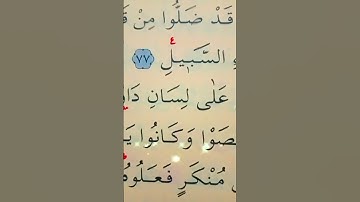 قَدْ ضَلُّوا مِنْ
السَّبِيلِ ٧٧
عَلَىٰ لِسَانِ
وَكَانُوا
مُنْكَرٍ فَعَلُوهُ